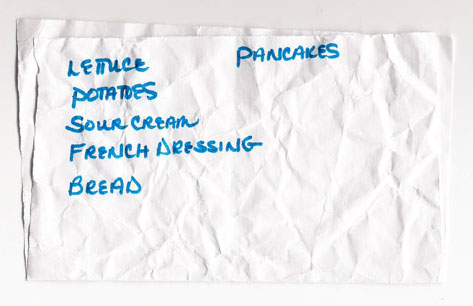 LETTUCE
POTATOES
SOUR CREAM
FRENCH DRESSING
BREAD
PANCAKES